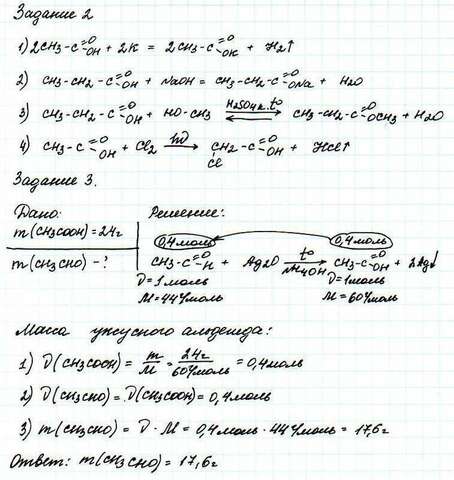 Задание 2
1) 2CH3-C(=O)OH + 2K = 2CH3-C(=O)OK + H2↑
2) CH3-CH2-C(=O)OH + NaOH = CH3-CH2-C(=O)ONa + H2O
3) CH3-CH2-C(=O)OH + HO-CH3 ⇄ (H2SO4 к. t°) CH3-CH2-C(=O)OCH3 + H2O
4) CH3-C(=O)OH + Cl2 →(hν) CH2(Cl)-C(=O)OH + HCl↑
Задание 3.
Дано: Решение:
m(CH3COOH) = 24г
m(CH3CHO) - ?
0,4моль 0,4моль
CH3-C(=O)H + Ag2O →(t°, NH4OH) CH3-C(=O)OH + 2Ag↓
ν=1моль ν=1моль
M=44г/моль M=60г/моль
Масса уксусного альдегида:
1) ν(CH3COOH) = m/M = 24г/60г/моль = 0,4моль
2) ν(CH3CHO) = ν(CH3COOH) = 0,4моль
3) m(CH3CHO) = ν · M = 0,4моль · 44г/моль = 17,6г
Ответ: m(CH3CHO) = 17,6г